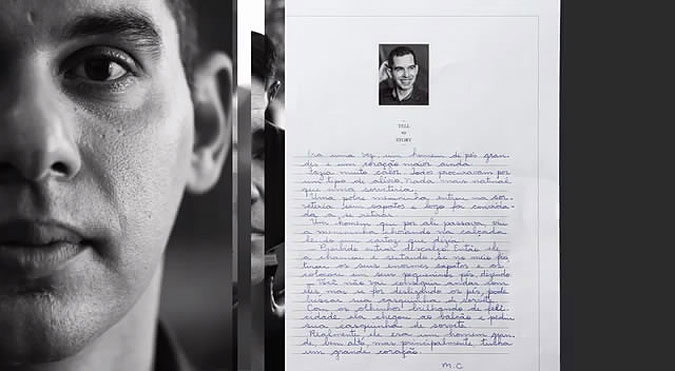 TELL
STORY
Era uma vez um homem de pés gran-
des e um coração maior ainda
Fazia muito calor todos procuravam por
um tipo de alívio. Nada mais natural
que uma sorveteria.
Uma pobre menininha entrou na sor-
veteria sem sapatos e logo foi convida-
da a se retirar
Um homem que por ali passava, viu
a menininha chorando na calçada
lendo um cartaz que dizia:
Proibido entrar descalço. Então ele
a chamou e sentando-se no meio fio
tirou os seus enormes sapatos e os
colocou em seus pequeninos pés, dizendo
- Você não vai conseguir andar com
eles mas se for deslizando os pés, pode
buscar sua casquinha de sorvete
Com os olhinhos brilhando de feli-
cidade ela chegou ao balcão e pediu
sua casquinha de sorvete
ele era um homem gran-
de bem alto, mas principalmente tinha
um grande coração.
M.C